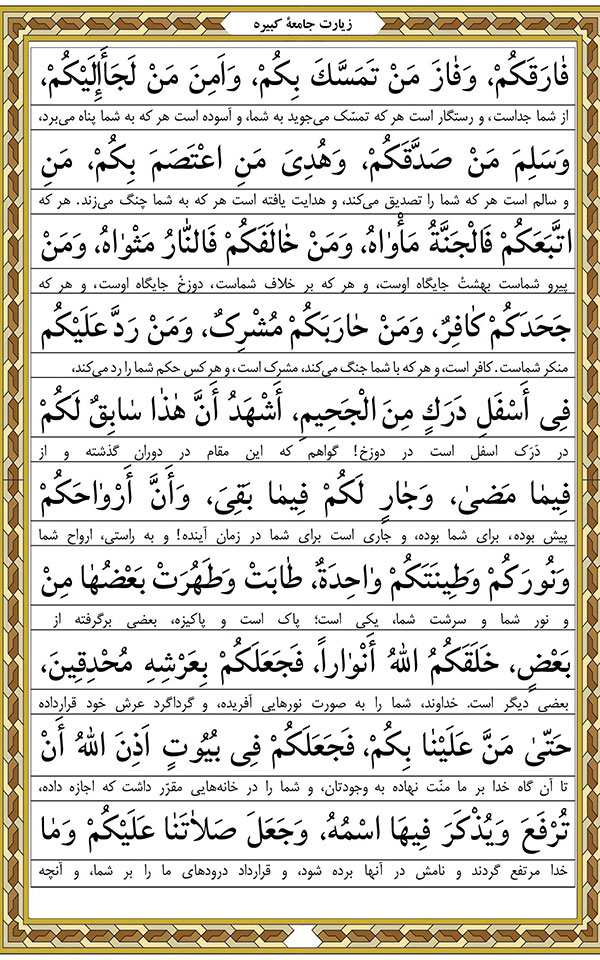 زیارت جامعهٔ کبیره
فٰارَقَكُمْ، وَفٰازَ مَنْ تَمَسَّكَ بِكُمْ، وَاَمِنَ مَنْ لَجَأَإِلَيْكُمْ،
از شما جداست، و رستگار است هر که تمسّک می‌جوید به شما، و آسوده است هر که به شما پناه می‌برد،
وَسَلِمَ مَنْ صَدَّقَكُمْ، وَهُدِىَ مَنِ اعْتَصَمَ بِكُمْ، مَنِ
و سالم است هر که شما را تصدیق می‌کند، و هدایت یافته است هر که به شما چنگ می‌زند. هر که
اتَّبَعَكُمْ فَالْجَنَّةُ مَأْوٰاهُ، وَمَنْ خٰالَفَكُمْ فَالنّٰارُ مَثْوٰاهُ، وَمَنْ
پیرو شماست بهشتْ جایگاه اوست، و هر که بر خلاف شماست، دوزخْ جایگاه اوست، و هر که
جَحَدَكُمْ كٰافِرٌ، وَمَنْ حٰارَبَكُمْ مُشْرِكٌ، وَمَنْ رَدَّ عَلَيْكُمْ
منکر شماست. کافر است، و هر که با شما جنگ می‌کند، مشرک است، و هر کس حکم شما را رد می‌کند،
فِى أَسْفَلِ دَرَكٍ مِنَ الْجَحِيمِ، أَشْهَدُ أَنَّ هٰذٰا سٰابِقٌ لَكُمْ
در دَرَک اسفل است در دوزخ! گواهم که این مقام در دوران گذشته و از
فِيمٰا مَضىٰ، وَجٰارٍ لَكُمْ فِيمٰا بَقِىَ، وَأَنَّ أَرْوٰاحَكُمْ
پیش بوده، برای شما بوده، و جاری است برای شما در زمان آینده! و به راستی، ارواح شما
وَنُورَكُمْ وَطِينَتَكُمْ وٰاحِدَةٌ، طٰابَتْ وَطَهُرَتْ بَعْضُهٰا مِنْ
و نور شما و سرشت شما، یکی است؛ پاک است و پاکیزه، بعضی برگرفته از
بَعْضٍ، خَلَقَكُمُ اللهُ أَنْوٰاراً، فَجَعَلَكُمْ بِعَرْشِهِ مُحْدِقِينَ،
بعضی دیگر است. خداوند، شما را به صورت نورهایی آفریده، و گرداگرد عرش خود قرارداده
حَتّىٰ مَنَّ عَلَيْنٰا بِكُمْ، فَجَعَلَكُمْ فِى بُيُوتٍ اَذِنَ اللهُ أَنْ
تا آن گاه خدا بر ما منّت نهاده به وجودتان، و شما را در خانه‌هایی مقرّر داشت که اجازه داده،
تُرْفَعَ وَيُذْكَرَ فِيهَا اسْمُهُ، وَجَعَلَ صَلاٰتَنٰا عَلَيْكُمْ وَمٰا
خدا مرتفع گردند و نامش در آنها برده شود، و قرارداد درودهای ما را بر شما، و آنچه